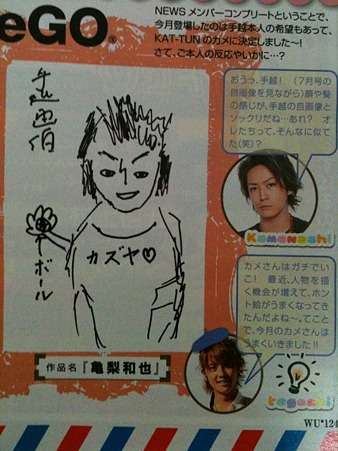 eGO®
NEWSメンバーコンプリートということで、
今月登場したのは手越本人の希望もあって、
KAT-TUNのカメに決定しました〜!
さて、ご本人の反応やいかに…?
おうっ、手越！（7月号の
自画像を見ながら）顔や髪
の感じが、手越の自画像と
ソックリだな…あれ？ オ
レたちって、そんなに似て
た（笑）？
Kamenashi
カズヤ♡
ボール
作品名「亀梨和也」
カメさんはガチでい
こ！ 最近、人物を描
く機会が増えて、ホン
ト絵がうまくなってき
たんだよね〜。てこと
で、今月のカメさんは
うまくいきました!!
tegoshi
WU*124